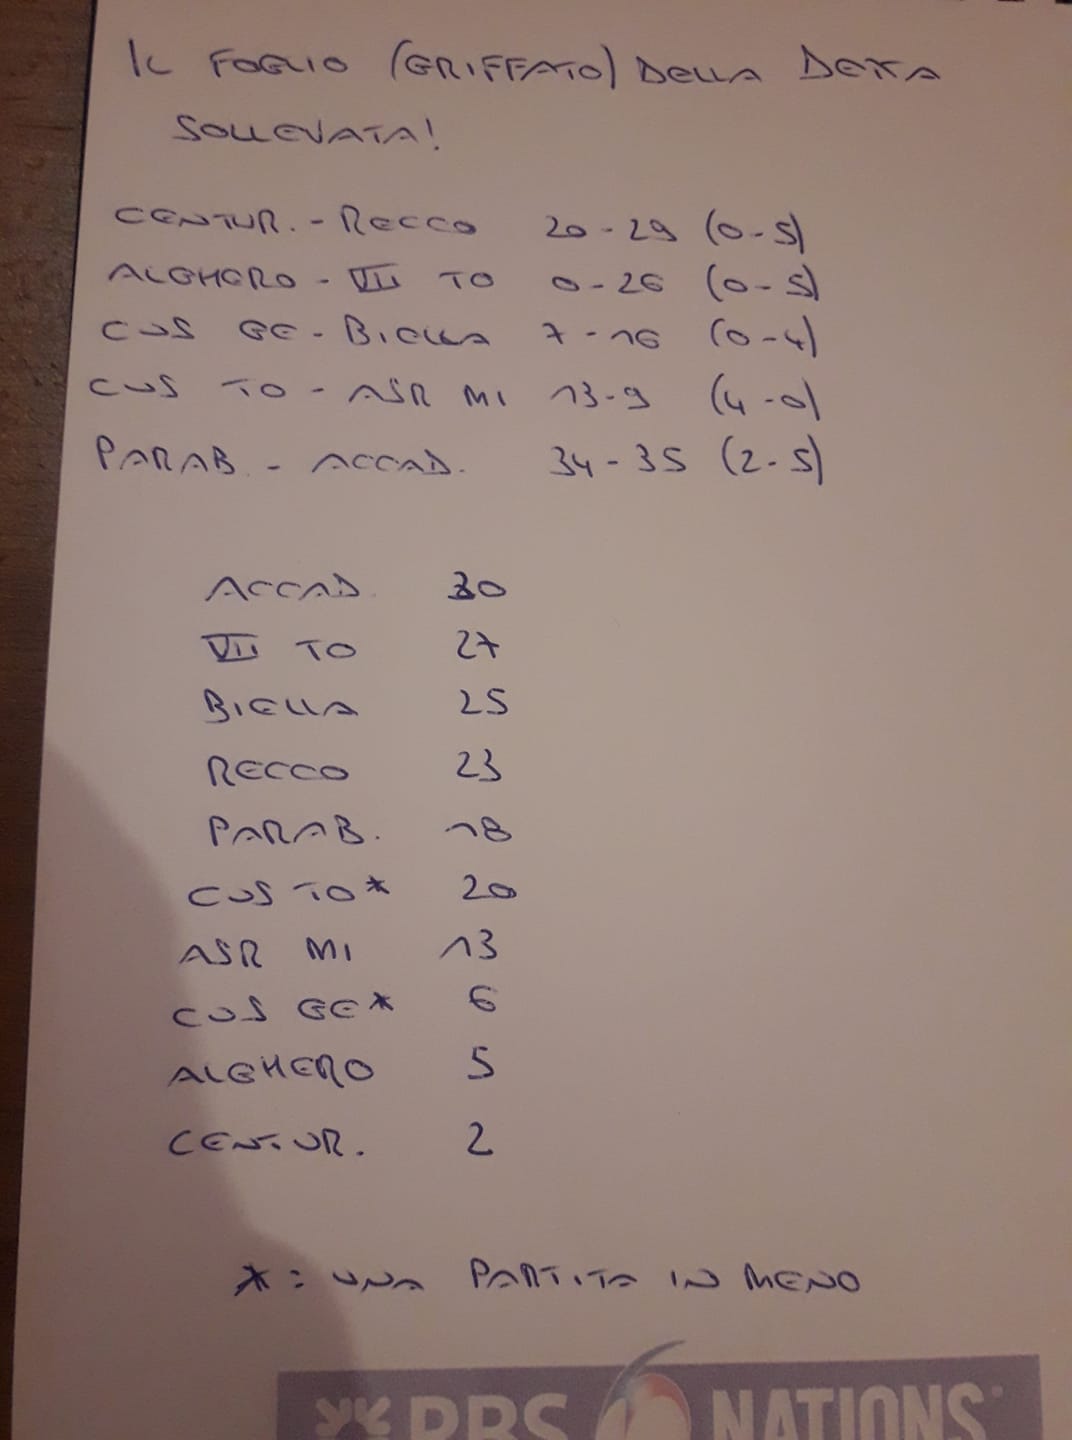 IL FOGLIO (GRIFFATO) DELLA DETTA
SOLLEVATA!
CENTUR. - RECCO 20 - 29 (0 - 5)
ALGHERO - VII TO 0 - 26 (0 - 5)
CUS GE - BIELLA 7 - 16 (0 - 4)
CUS TO - ASR MI 13 - 9 (4 - 0)
PARAB. - ACCAD. 34 - 35 (2 - 5)
ACCAD. 30
VII TO 27
BIELLA 25
RECCO 23
PARAB. 18
CUS TO* 20
ASR MI 13
CUS GE* 6
ALGHERO 5
CENTUR. 2
* = UNA PARTITA IN MENO
RBS 6 NATIONS